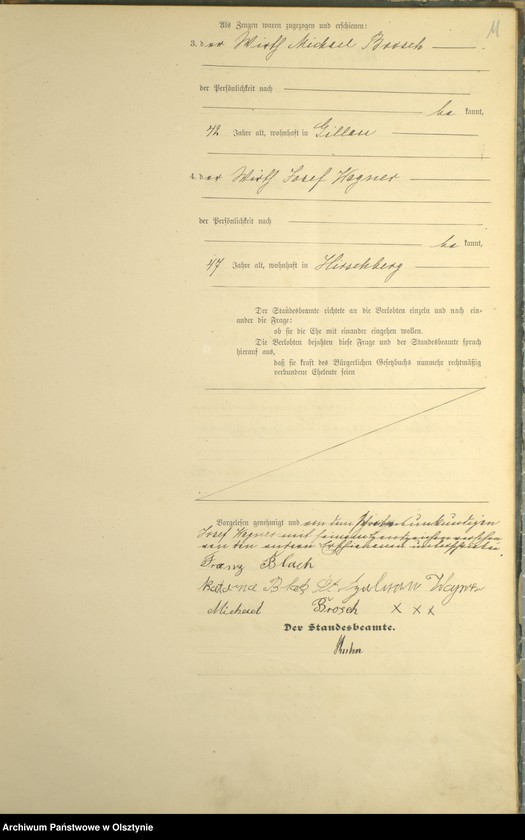 11
Als Zeugen waren zugezogen und erschienen:
3. der Wirth Michael Brosch
der Persönlichkeit nach
be kannt,
42 Jahre alt, wohnhaft in Gillau
4. der Wirth Josef Wagner
der Persönlichkeit nach
be kannt,
47 Jahre alt, wohnhaft in Hirschberg
Der Standesbeamte richtete an die Verlobten einzeln und nach ein-
ander die Frage:
ob sie die Ehe mit einander eingehen wollen.
Die Verlobten bejahten diese Frage und der Standesbeamte sprach
hierauf aus,
daß sie kraft des Bürgerlichen Gesetzbuchs nunmehr rechtmäßig
verbundene Eheleute seien
Vorgelesen genehmigt und von dem Schreibensunkundigen
Josef Wagner mit seinem Handzeichen versehen
von den anderen Erschienenen unterschrieben.
Franz Blach
geb. Wagner
Michael Brosch x x x
Der Standesbeamte.
Kuhn
Archiwum Państwowe w Olsztynie